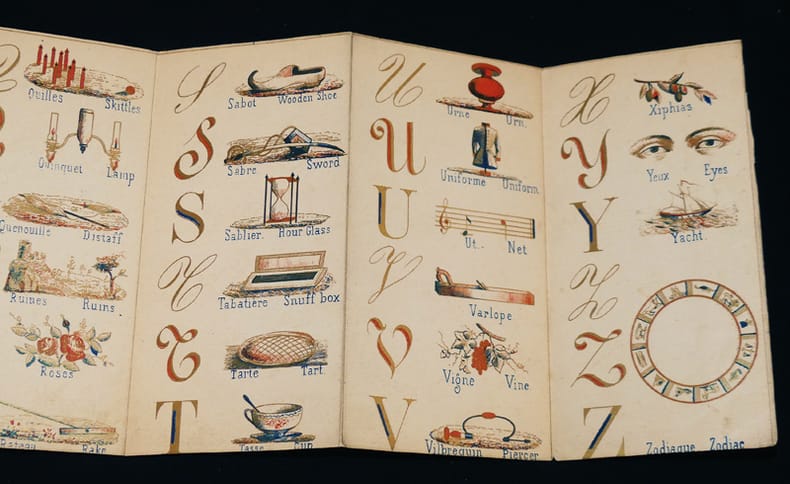 Quilles Skittles
Quinquet Lamp
Quenouille Distaff
Ruines Ruins
Roses
Rateau Rake
S
Sabot Wooden Shoe
S
Sabre Sword
S
Sablier. Hour Glass
T
Tabatière Snuff box
T
Tarte Tart.
T
Tasse Cup
U
Urne Urn.
U
Uniforme Uniform
U
Ut.- Net
V
Varlope
V
Vigne Vine
V
Vilbrequin Piercer
X
Xiphias
Y
Yeux Eyes
Y
Yacht.
Z
Z
Z
Zodiaque Zodiac